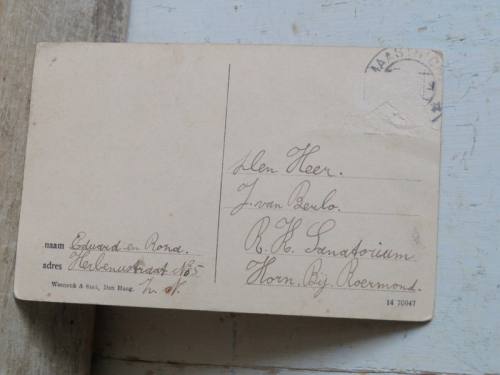 MAASTRICHT
Den Heer.
J. van Berlo.
R. K. Sanatorium
Horn. Bij. Roermond.
naam Eduard en Rond.
adres Herbenusstraat No 5
Weenenk & Snel, Den Haag.
14 70047